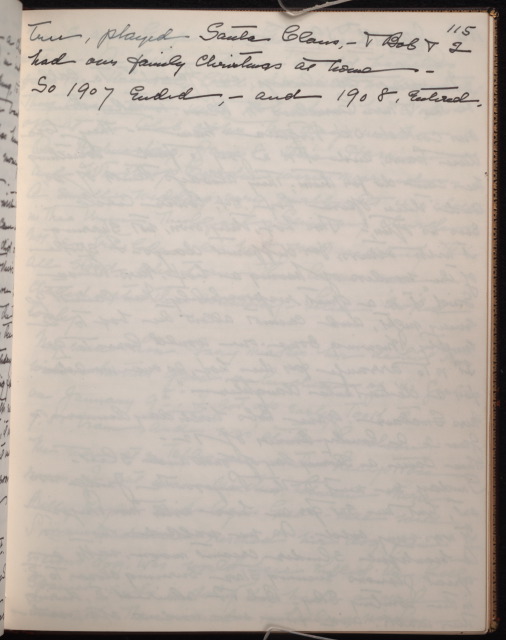 115
Tree, played Santa Claus, - & Bob & I
had our family Christmas at home -
So 1907 Ended, - and 1908, Entered.